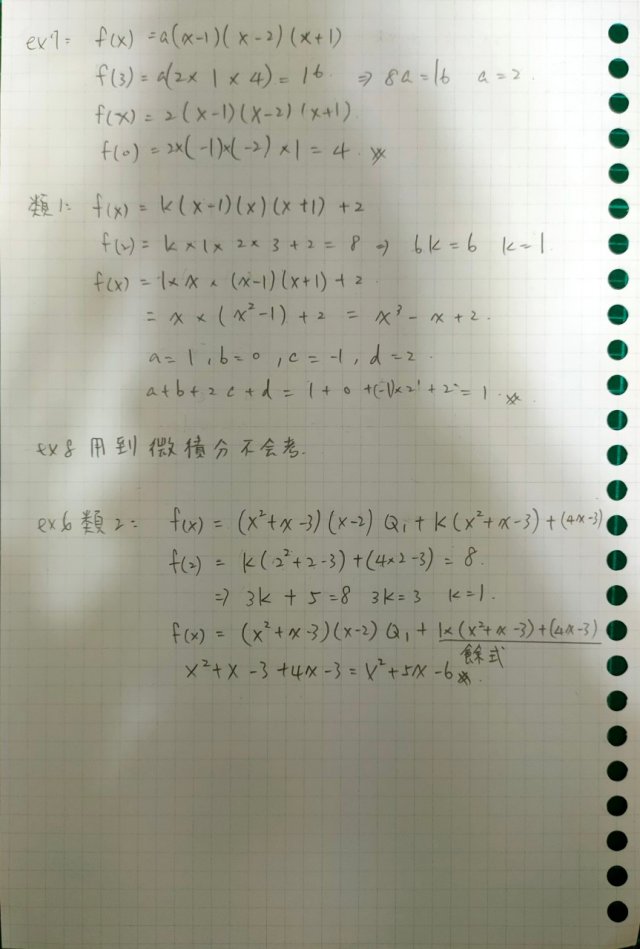 ex7: f(x) = a(x-1)(x-2)(x+1)
f(3) = a(2×1×4) = 16 ⇒ 8a=16 a=2.
f(x) = 2(x-1)(x-2)(x+1)
f(0) = 2×(-1)×(-2)×1 = 4 ※
類1: f(x) = k(x-1)(x)(x+1)+2
f(2) = k×1×2×3+2 = 8 ⇒ 6k=6 k=1.
f(x) = 1×x×(x-1)(x+1)+2
= x×(x²-1)+2 = x³-x+2.
a=1, b=0, c=-1, d=2.
a+b+2c+d = 1+0+(-1)×2+2=1 ※.
ex8 用到微積分不会考.
ex6 類2: f(x) = (x²+x-3)(x-2)Q₁+k(x²+x-3)+(4x-3)
f(2) = k(2²+2-3)+(4×2-3) = 8.
⇒ 3k+5=8 3k=3 k=1.
f(x) = (x²+x-3)(x-2)Q₁+1×(x²+x-3)+(4x-3)
餘式
x²+x-3+4x-3=x²+5x-6※.